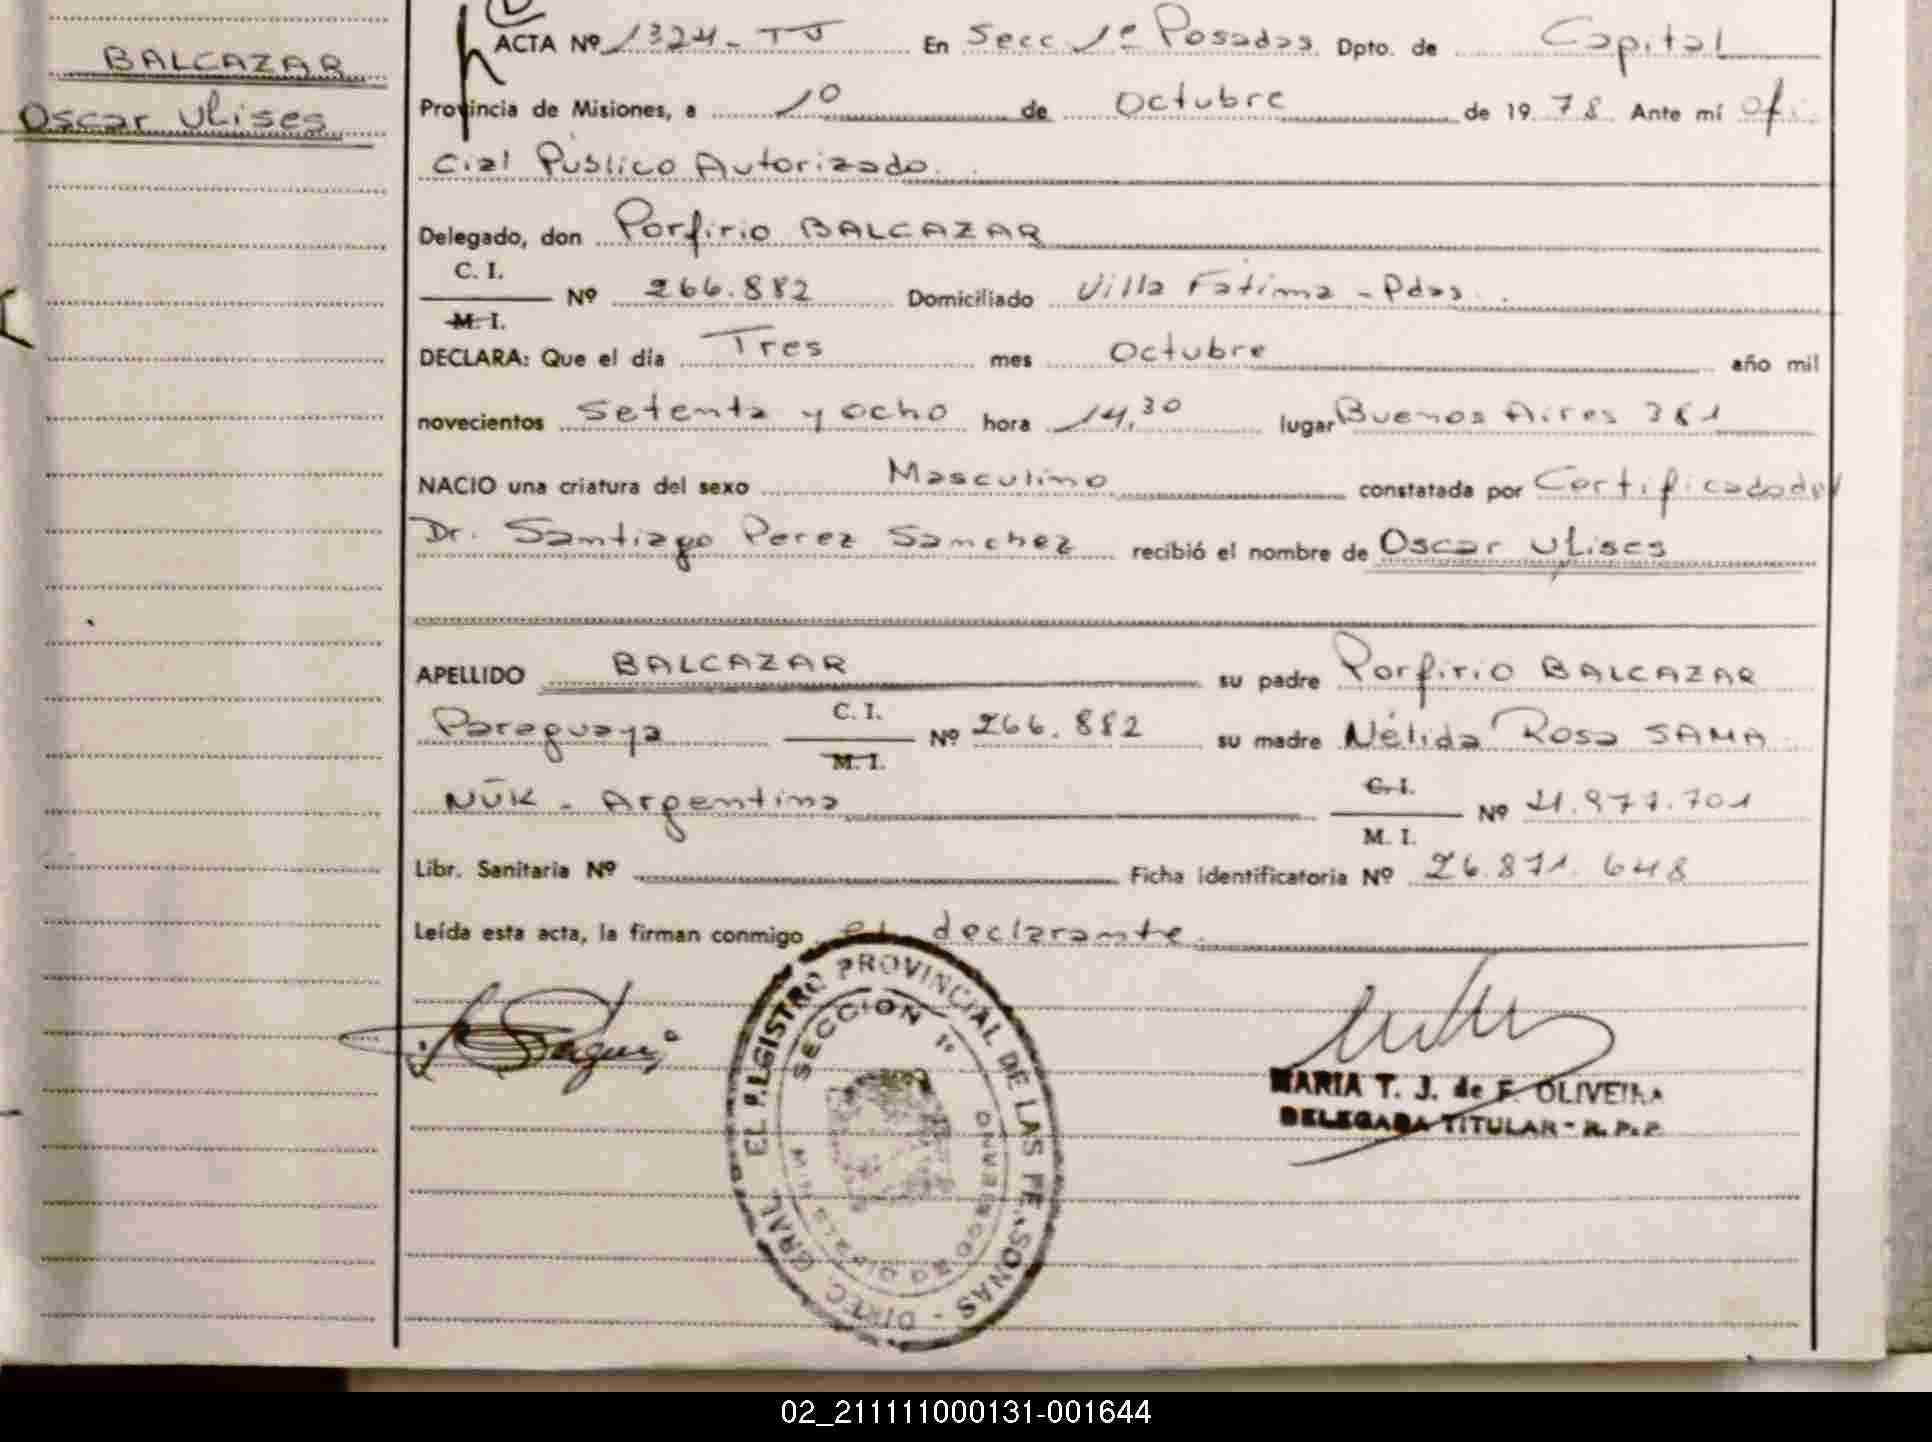 BALCAZAR
Oscar Ulises
ACTA Nº 1324 - TJ En Secc 1ª Posadas Dpto. de Capital
Provincia de Misiones, a 10 de Octubre de 1978 Ante mí Ofi
cial Público Autorizado.
Delegado, don Porfirio BALCAZAR
C. I.
M. I.
Nº 266.882 Domiciliado Villa Fatima - Pdas.
DECLARA: Que el día Tres mes Octubre año mil
novecientos Setenta y ocho hora 14,30 lugar Buenos Aires 381
NACIO una criatura del sexo Masculino constatada por Certificado del
Dr. Santiago Perez Sanchez recibió el nombre de Oscar Ulises
APELLIDO BALCAZAR su padre Porfirio BALCAZAR
Paraguaya C. I. M. I. Nº 266.882 su madre Nélida Rosa SAMA
NIUK - Argentina C. I. M. I. Nº 11.977.701
Libr. Sanitaria Nº Ficha identificatoria Nº 26.871.648
Leída esta acta, la firman conmigo el declarante.
DIREC. GRAL. DEL REGISTRO PROVINCIAL DE LAS PERSONAS
SECCION 1ª
MARIA T. J. de F. OLIVEIRA
DELEGADA TITULAR - R. P. P.
02_211111000131-001644